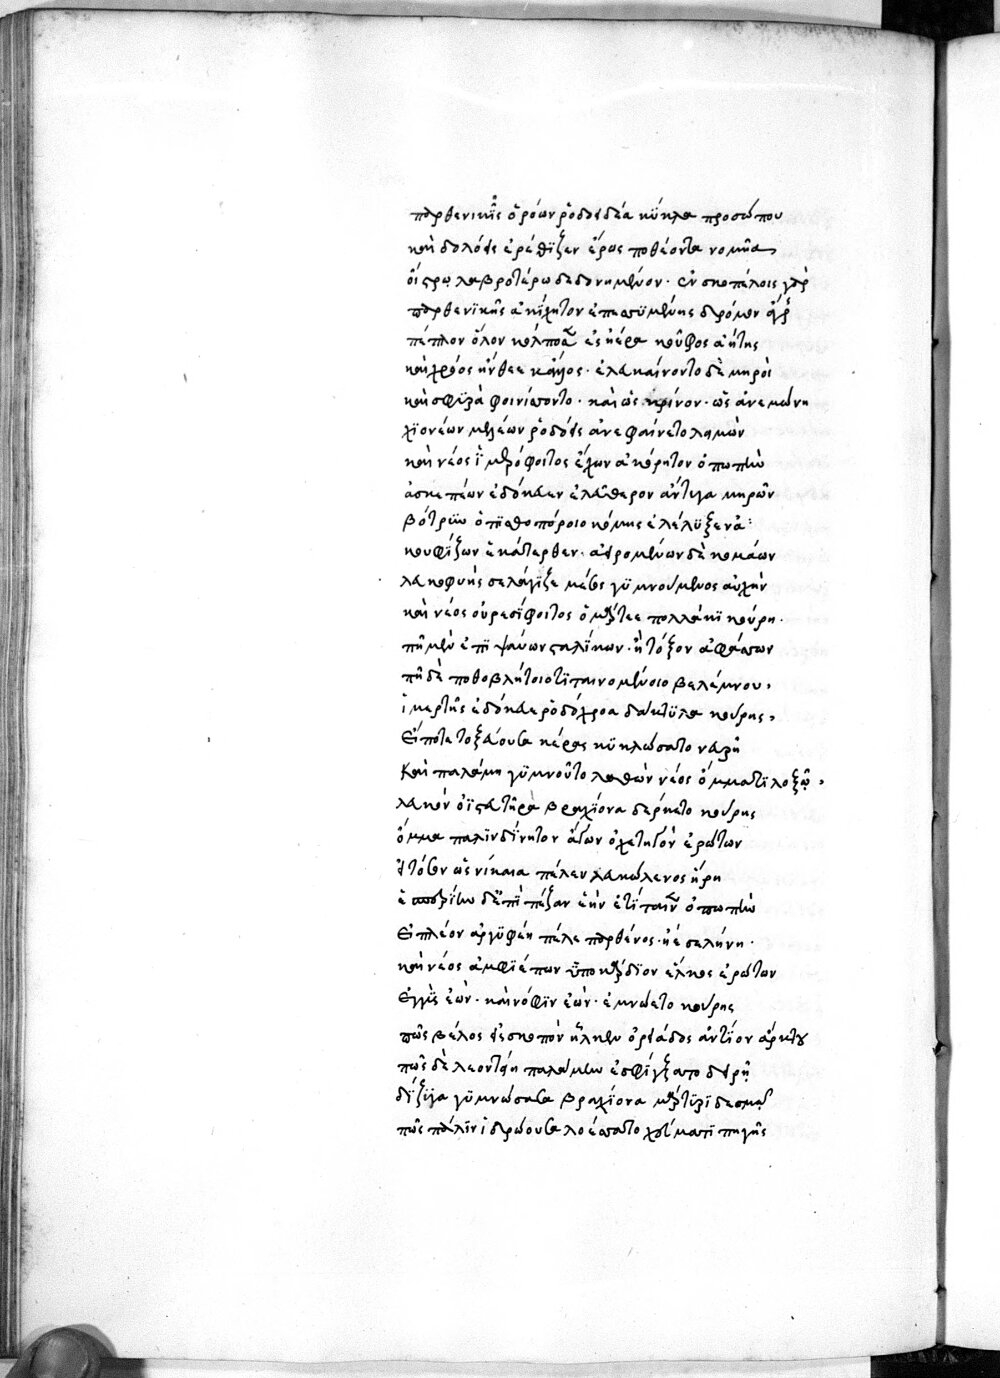 παρθενικῆς ὁρόων ῥοδοειδέα κύκλα προσώπου
καὶ δολόεις ἐρέθιζεν ἔρως ποθέοντα νομῆα,
οἴστρῳ λαβροτέρῳ δεδονημένον· ἐν σκοπέλοις γὰρ
παρθενικῆς ἀκίχητον ἐπεσσυμένης δρόμον ἄγρῃ
πέπλον ὅλον κόλπωσεν ἐς ἠέρα κοῦφος ἀήτης
καὶ χροὸς ἤνθεε κάλλος· ἐλευκαίνοντο δὲ μηροὶ
καὶ σφυρὰ φοινίσσοντο· καὶ ὡς κρίνον· ὡς ἀνεμώνη
χιονέων μελέων ῥοδόεις ἀνεφαίνετο λειμὼν
καὶ νέος ἱμερόφοιτος ἔχων ἀκόρητον ὀπωπὴν
ἀσκεπέων ἐδόκευεν ἐλεύθερον ἄντυγα μηρῶν
βότρυν ὀπισθοπόροιο κόμης ἐλέλιξεν ἀ:
κουφίζων ἑκάτερθεν· ἀειρομένων δὲ κομάων
λευκοφυὴς σελάγιζε μέσος γυμνούμενος αὐχήν
καὶ νέος οὐρεσίφοιτος ὁμάρτεε πολλάκι κούρῃ·
πῆ μὲν ἐπιψαύων σταλίκων· ἢ τόξον ἀφάσσων
πῆ δὲ ποθοβλήτοιο τιταινομένοιο βελέμνου,
ἱμερτῆς ἐδόκευε ῥοδόχροα δάκτυλα κούρης,
εἴ ποτε τοξεύουσα κέρας κυκλώσατο νευρῇ
καὶ παλάμη γυμνοῦτο λαθὼν νέος ὄμματι λοξῷ,
λευκὸν ὀϊστευτῆρα βραχίονα δέρκετο κούρης
ὄμμα παλινδίνητον ἄγων ὀχετηγὸν ἐρώτων
εἰ τόσον ὡς νίκαια πέλεν λευκώλενος ἥρη
ἑσπερίην δ' ἐπὶ πέζαν ἑὴν ἐτίταινεν ὀπωπὴν
εἰ πλέον ἀργυφέη πέλε παρθένος· ἠὲ σελήνη·
καὶ νέος ἀμφιέπων ὑποκάρδιον ἕλκος ἐρώτων
ἐγγὺς ἐὼν· καὶ νόσφιν ἐὼν· ἐμνώετο κούρης
πῶς βέλος εἰς σκοπὸν ἧκεν ὀρειάδος ἀντίον ἄρκτου
πῶς δὲ λεοντείη παλάμην ἐσφίγξατο δειρῇ
δίζυγα γυμνώσασα βραχίονα μάρτυρι δεσμῷ
πῶς πάλιν ἱδρώουσα λοέσσατο χεύματι πηγῆς